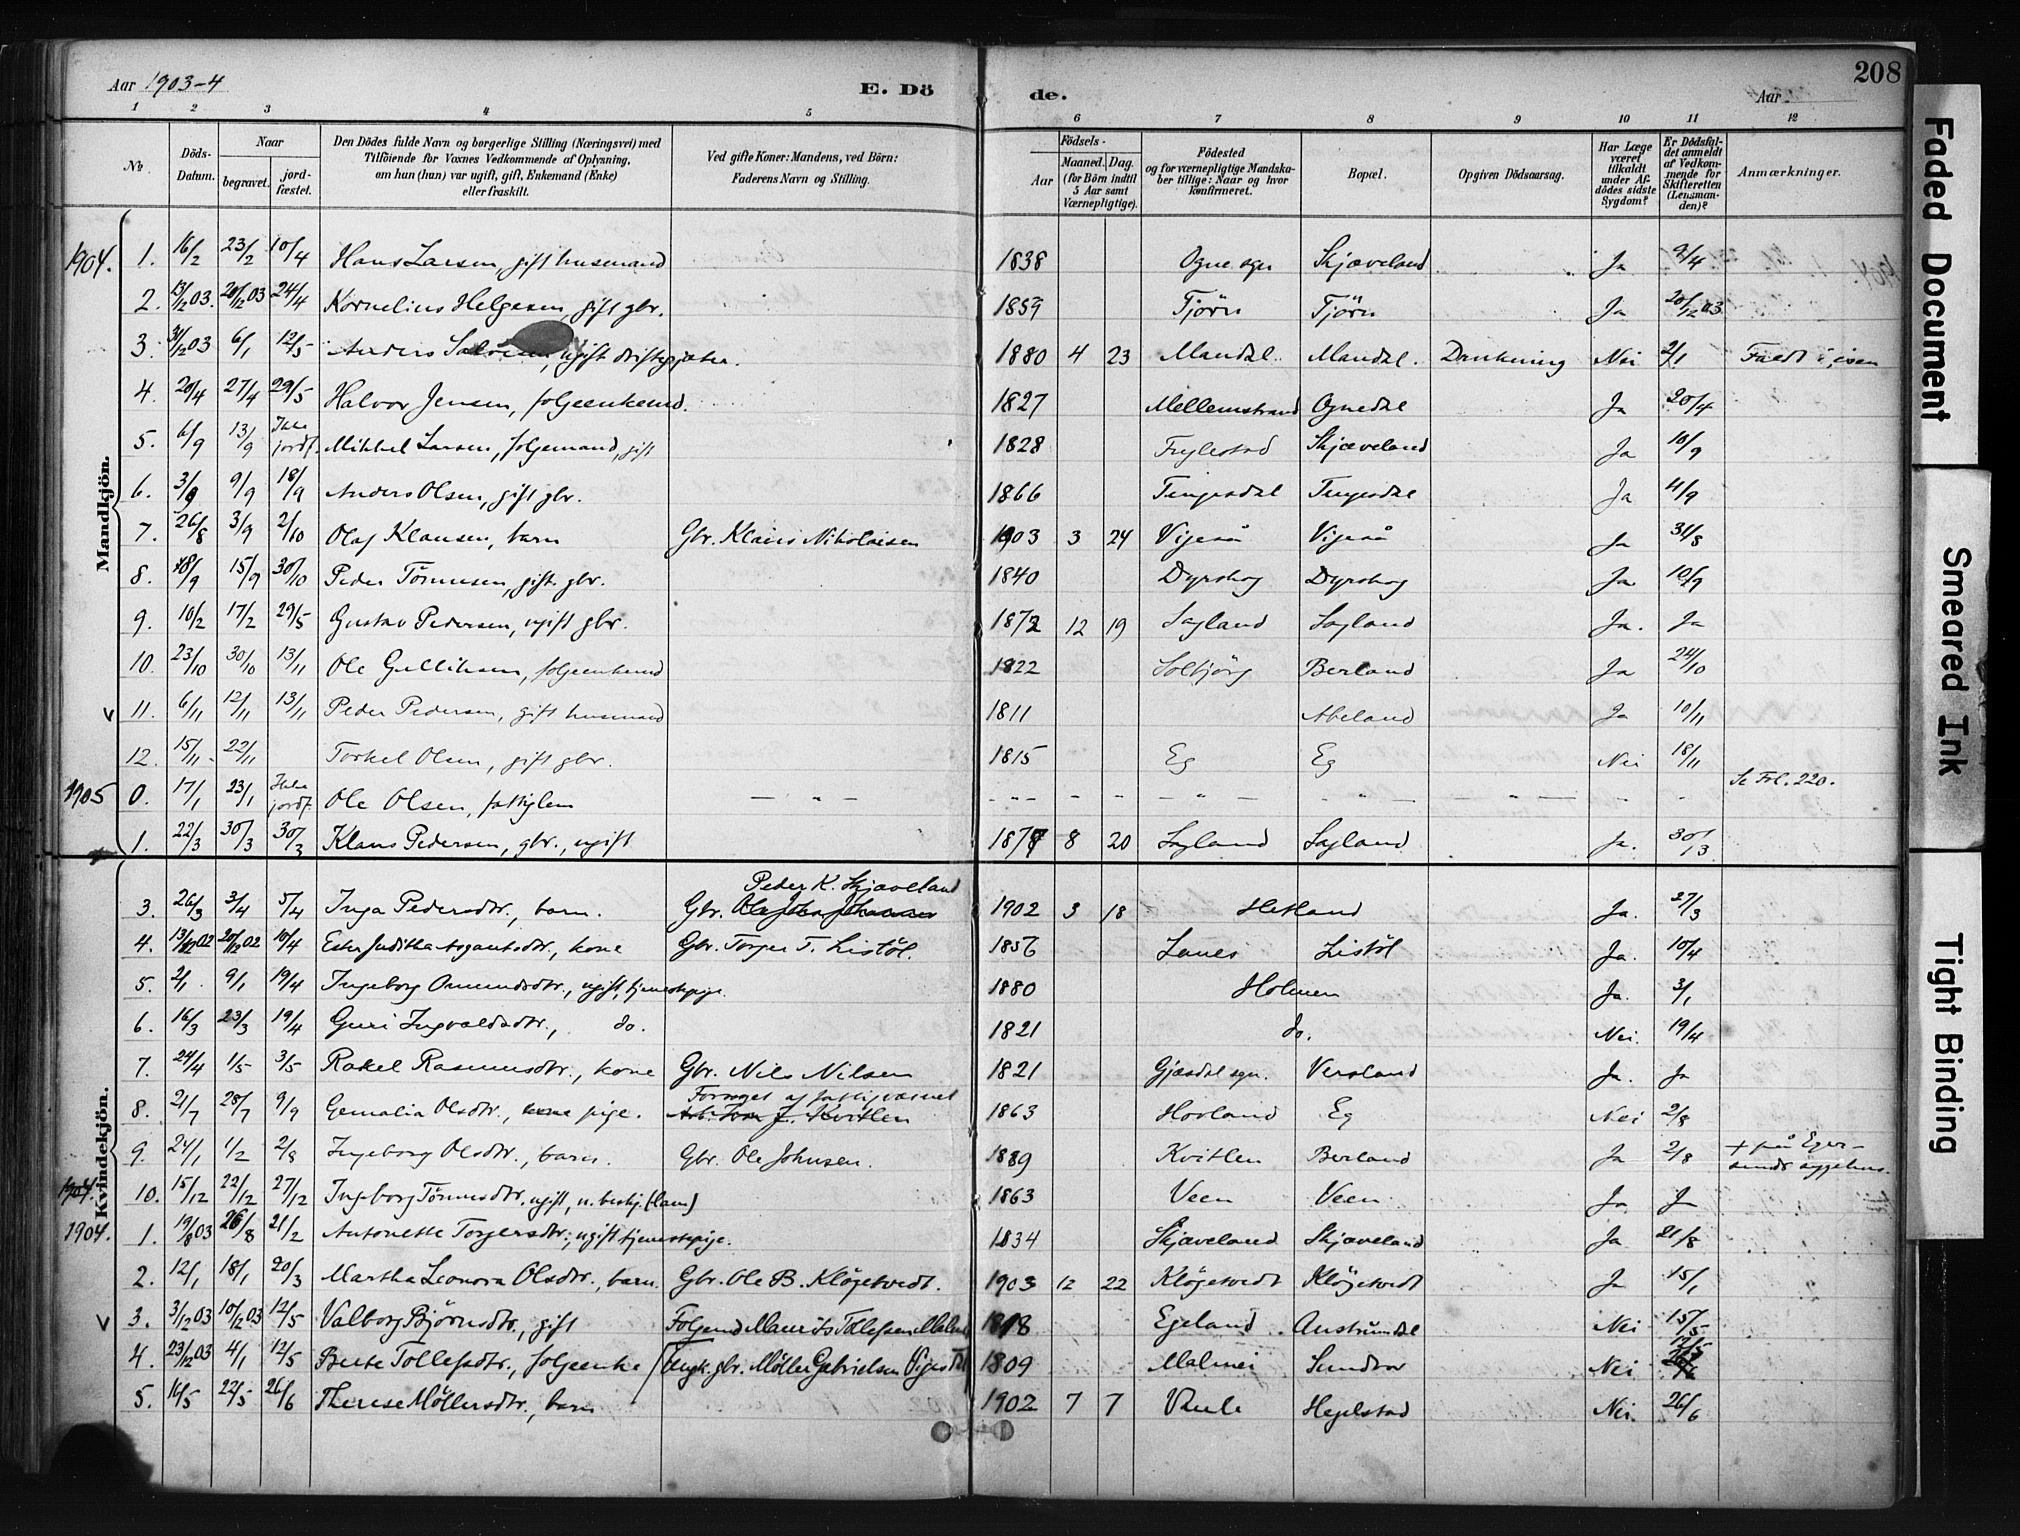 Aar 1903-4 E. Dö de. Aar 208
1 2 3 4 5 6 7 8 9 10 11 12
No. Döds-Datum. Naar begravet. jordfæstet. Den Dödes fulde Navn og borgerlige Stilling (Næringsvei) med Tilföiende for Voxnes Vedkommende af Oplysning, om hun (han) var ugift, gift, Enkemand (Enke) eller fraskilt. Ved gifte Koner: Mandens, ved Börn: Faderens Navn og Stilling. Födsels- Aar Maaned. Dag. (for Börn indtil 5 Aar samt Værnepligtige). Födested og for værnepligtige Mandskaber tillige: Naar og hvor konfirmeret. Bopæl. Opgiven Dödsaarsag. Har Læge været tilkaldt under Afdödes sidste Sygdom? Er Dödsfaldet anmeldt af Vedkommende for Skifteretten (Lensmanden)? Anmærkninger.
Mandkjön.
1904. 1. 16/2 23/2 10/4 Hans Larsen, gift husmand 1838 Ogne sgn Skjæveland Ja 9/4
2. 13/12 03. 20/12 03 24/4 Kornelius Helgesen, gift gbr. 1859 Tjörn Tjörn Ja 20/12 03
3. 31/12 03 6/1 12/5 Anders ugift 1880 4 23 Mandal. Mandal. Drukning Nei 2/1 Faldt i isen
4. 20/4 27/4 29/5 Halvor Jensen, folgeenkemd. 1827 Mellemstrand Ognedal Ja 20/4
5. 6/9 13/9 Ikke jordf. Mikkel Larsen, folgemand, gift 1828 Fuglestad Skjæveland Ja 10/9
6. 3/9 9/9 18/9 Anders Olsen, gift gbr. 1866 Tengesdal Tengesdal Ja 4/9
7. 26/8 3/9 2/10 Olaf Klausen, barn Gbr. Klaus Nikolaisen 1903 3 24 Vigeså Vigeså Ja 31/8
8. 8/9 15/9 30/10 Peder Tönnesen, gift gbr. 1840 Dyrskog Dyrskog Ja 10/9
9. 10/2 17/2 29/5 Gustav Pedersen, ugift gbr. 1872 12 19 Sagland Sagland Ja. Ja
10. 23/10 30/10 13/11 Ole Gulliksen, folgeenkemd 1822 Solbjörg Berland Ja 24/10
11. 6/11 12/11 13/11 Peder Pedersen, gift husmand 1811 Abeland Ja 10/11
12. 15/11 22/11 Torkel Olsen, gift gbr. 1815 Eg Eg Nei 18/11
1905 0. 17/1 23/1 Ikke jordf. Ole Olsen, fattiglem — " — - " - - - — " — - " - — " — - - Se Frl. 220.
1. 22/3 30/3 30/3 Klaus Pedersen, gbr., ugift 1877 8 20 Sagland Sagland Ja. 30/3
Kvindekjön.
3. 26/3 3/4 5/4 Inga Pedersdtr., barn. Gbr. Peder K. Skjæveland 1902 3 18 Hetland Ja. 27/3
4. 13/12 02 20/12 02 10/4 Ester Juditha Asgautsdtr., kone Gbr. Torger T. Listöl. 1856 Lanes Listöl Ja. 10/4
5. 2/1. 9/1 19/4 Ingeborg Omundsdtr., ugift, tjenestepige. 1880 Holmen Ja. 3/1
6. 16/3 23/3 19/4 Guri Ingvaldsdtr., do. 1821 do. Nei. 19/4
7. 24/4 1/5 3/5 Rakel Rasmusdtr., kone Gbr. Nils Nilsen 1821 Gjæsdal sgn. Versland Ja. Ja
8. 21/7 28/7 9/9 Gemalia Olsdtr., kone pige. Forsørget af fattigvæsnet 1863 Hovland Eg Nei 2/8
9. 24/1 1/2 2/8 Ingeborg Olsdtr., barn. Gbr. Ole Johnsen. 1889 Kvitlen Berland Ja 2/8 + på Egersunds sygehus.
1904. 10. 15/12 22/12 27/12 Ingeborg Tönnesdtr. ugift, u. beskj. (lam) 1863 Veen Veen Ja Ja
1904. 1. 19/8 03 26/8 21/2 Antonette Torgersdtr., ugift tjenestepige. 1834 Skjæveland Skjæveland Ja 21/8
2. 12/1 18/1 20/3 Martha Leonora Olsdtr., barn. Gbr. Ole B. Klögetvedt. 1903 12 22 Klögetvedt Klögetvedt Ja 15/1
3. 3/12 03 10/12 03 12/5 Valborg Björnsdtr., gift Folgemd Maurits Tollefsen 1818 Egeland Austrumdal Nei 15/5
4. 23/12 03 4/1 12/5 Berte Tollefsdtr., folgeenke 1809 Malmei Sundvor Nei
5. 16/5 22/5 26/6 Therese Möllersdtr., barn (Ungk. gbr. Möller Gabrielsen 1902 7 7 Rule Hegelstad Nei. 26/6
Faded Document
Smeared Ink
Tight Binding